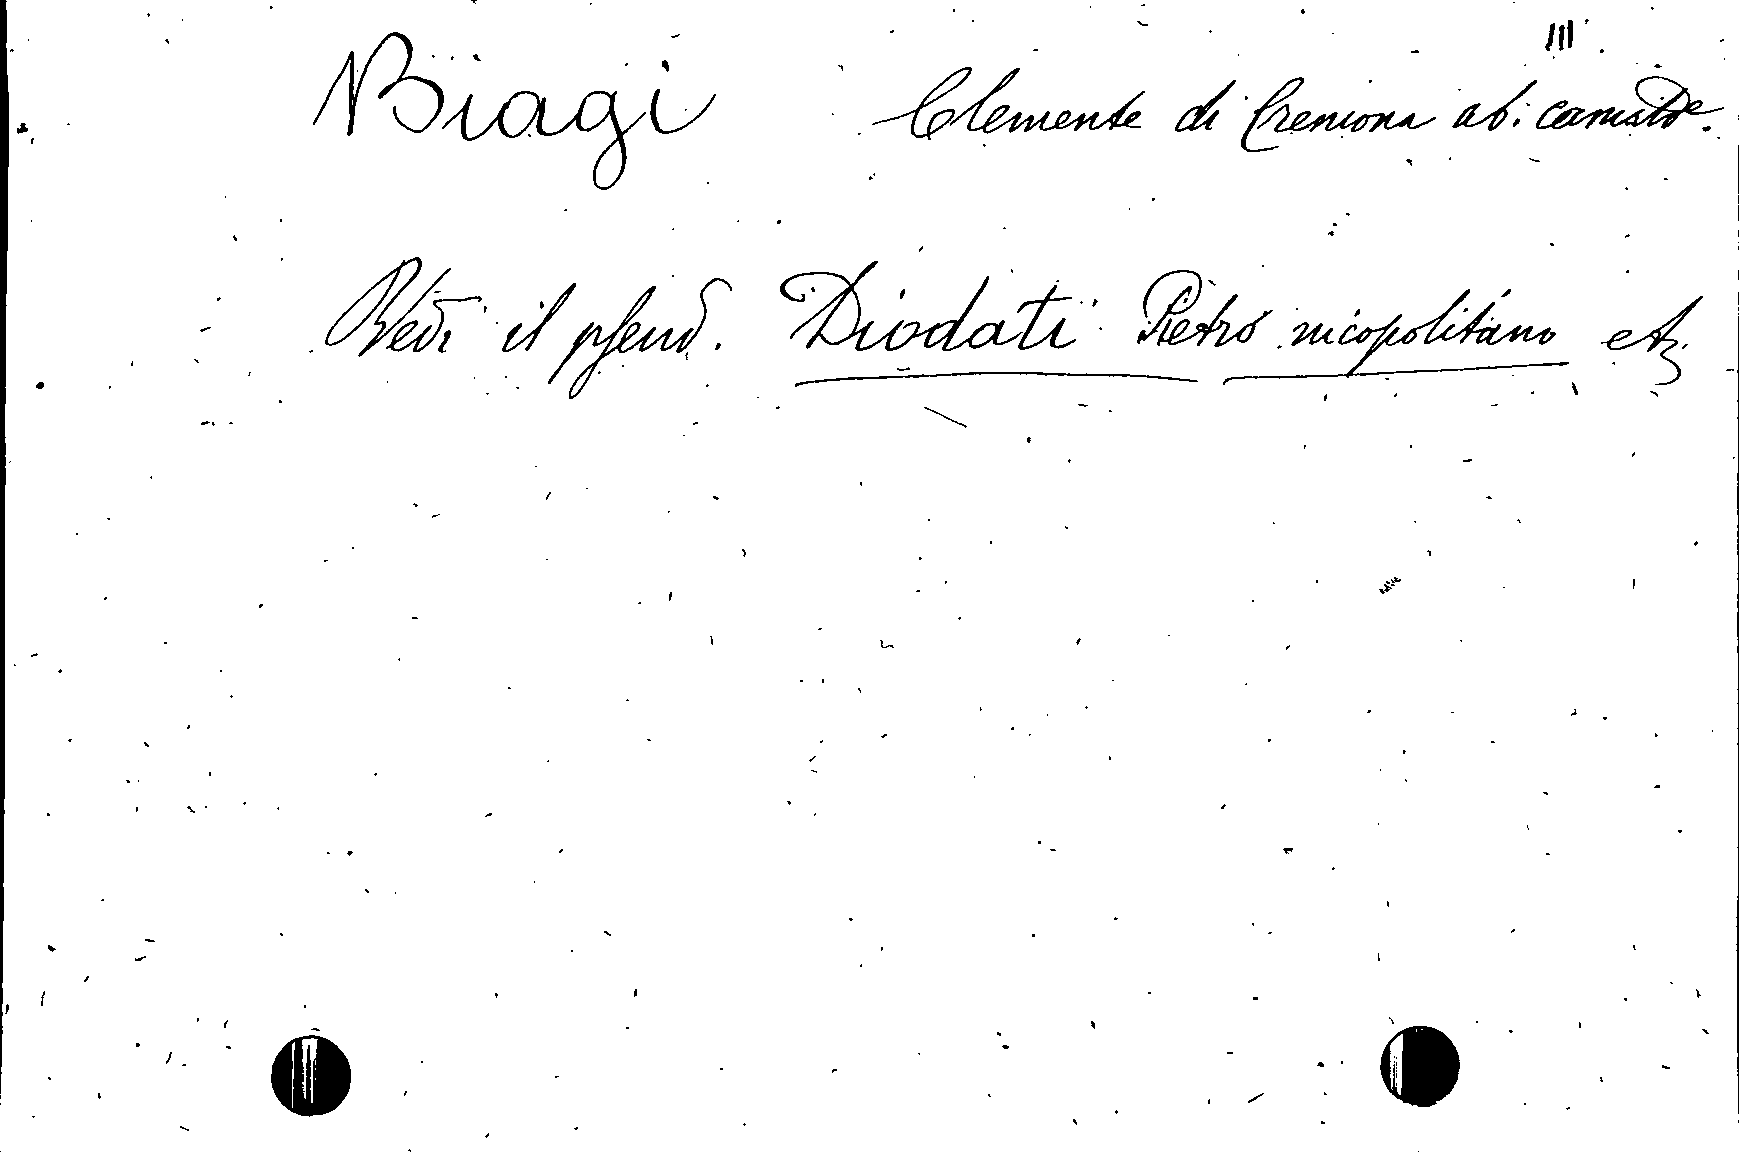 III
Biagi Clemente di Cremona ab. camald.e
Vedi il pseud. Diodati Pietro nicopolitano etc.